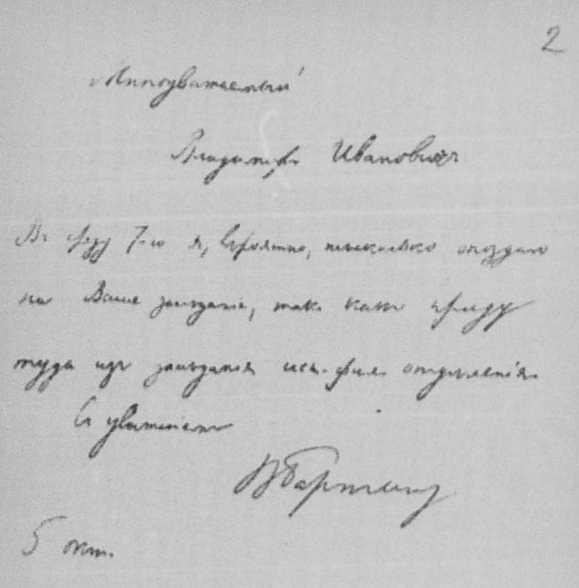 2
Многоуважаемый
Владимиръ Ивановичъ
Въ среду 7-го я, вѣроятно, нѣсколько опоздаю
на Ваше засѣданіе, такъ какъ приду
туда изъ засѣданія ист.-фил. отдѣленія.
Съ уваженіемъ
В Бартольд
5 окт.